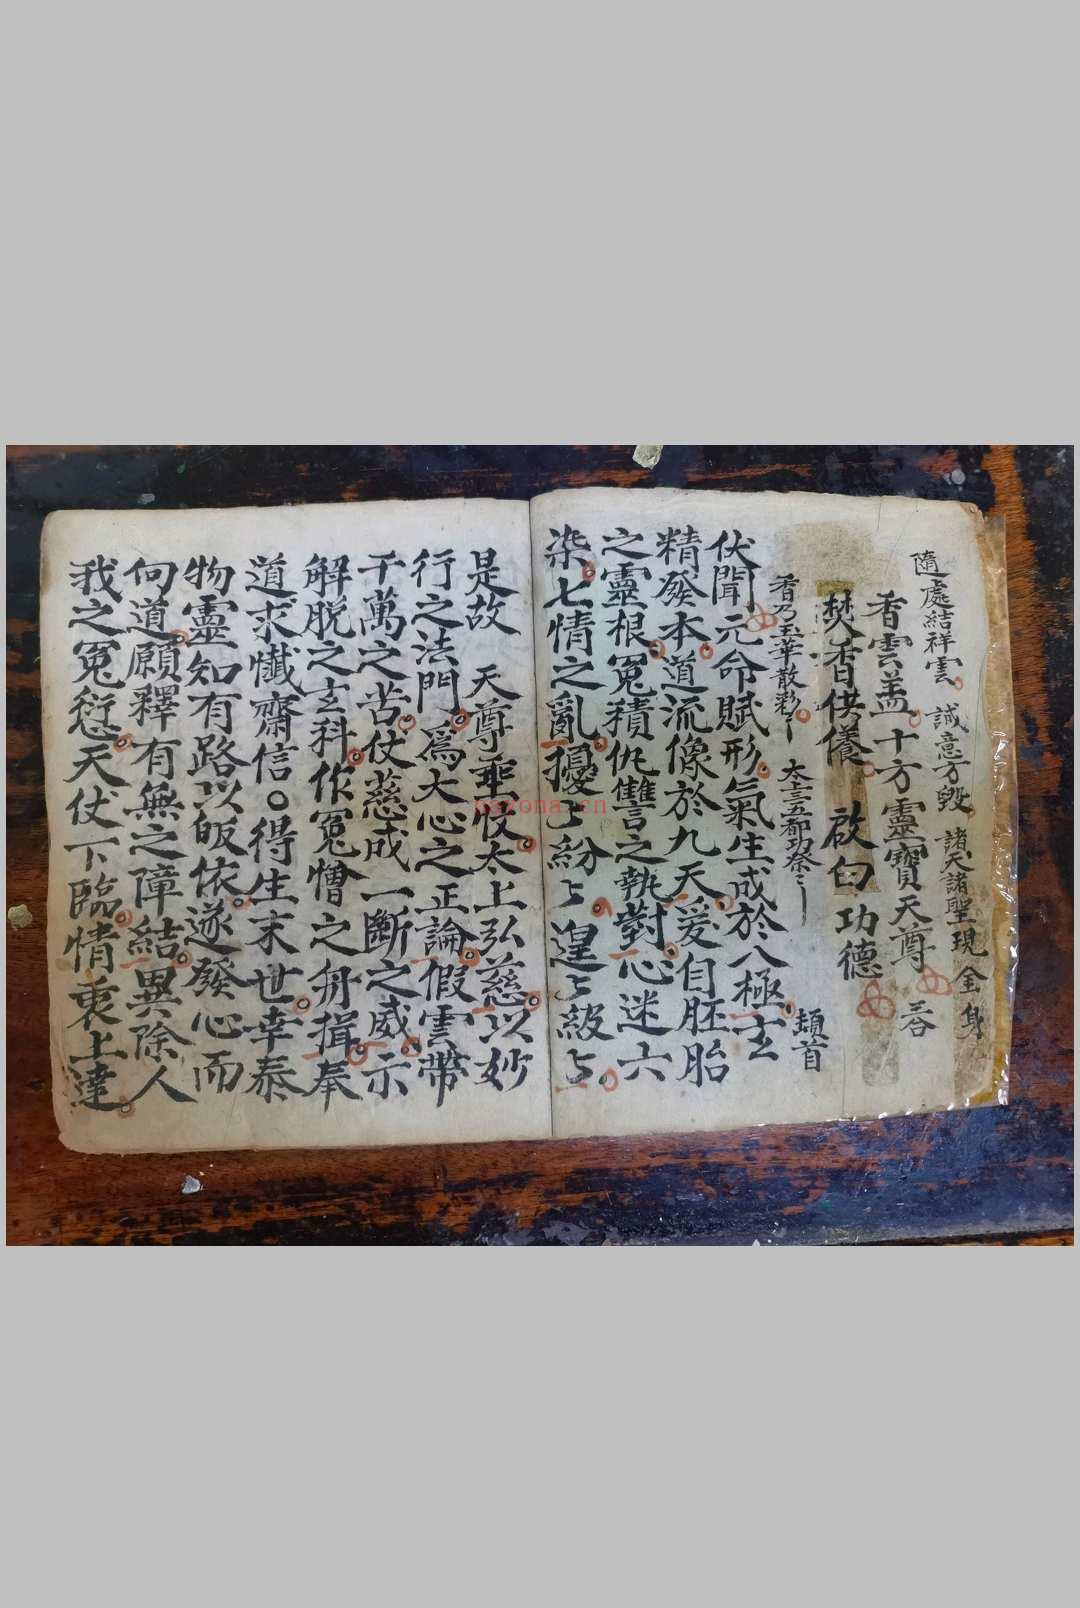 隨處結祥雲。誠意方毀。諸天諸聖現金身
香雲盖。十方靈寶天尊 三各
焚香供養。啟白功德
香乃玉華散彩〻 太上三五都功泰〻 頫首
伏聞元命賦形。氣生成於八極。玄
精發本。道流像於九天。爰自胚胎
之靈根。冤積仇讐之執對。心迷六
染。七情之亂。擾〻紛〻。遑〻級〻。
是故 天尊垂教。太上弘慈。以妙
行之法門。爲大心之正論。假雲帶
千萬之苦。仗慈成一斷之威。示
解脱之玄科。作冤憎之舟揖。奉
道求懴齋信○得生末世。幸忝
物靈。知有路以皈依。遂發心而
向道。願釋有無之障結。異除人
我之冤愆。天仗下臨。情衷上達。
nazona.cn